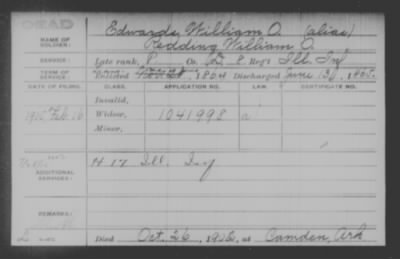 DEAD
Edwards, William O. (alias)
NAME OF SOLDIER:
Redding William O.
SERVICE: Late rank, P Co. D, 8 Reg't Ill. Inf
TERM OF SERVICE: Enlisted 1864 Discharged June 13, 1865.
DATE OF FILING. CLASS. APPLICATION NO. LAW. CERTIFICATE NO.
Invalid,
Feb. 16 Widow, 1041998
Minor,
ADDITIONAL SERVICES: H 17 Ill. Inf
REMARKS:
Died Oct. 26, at Camden, Ark